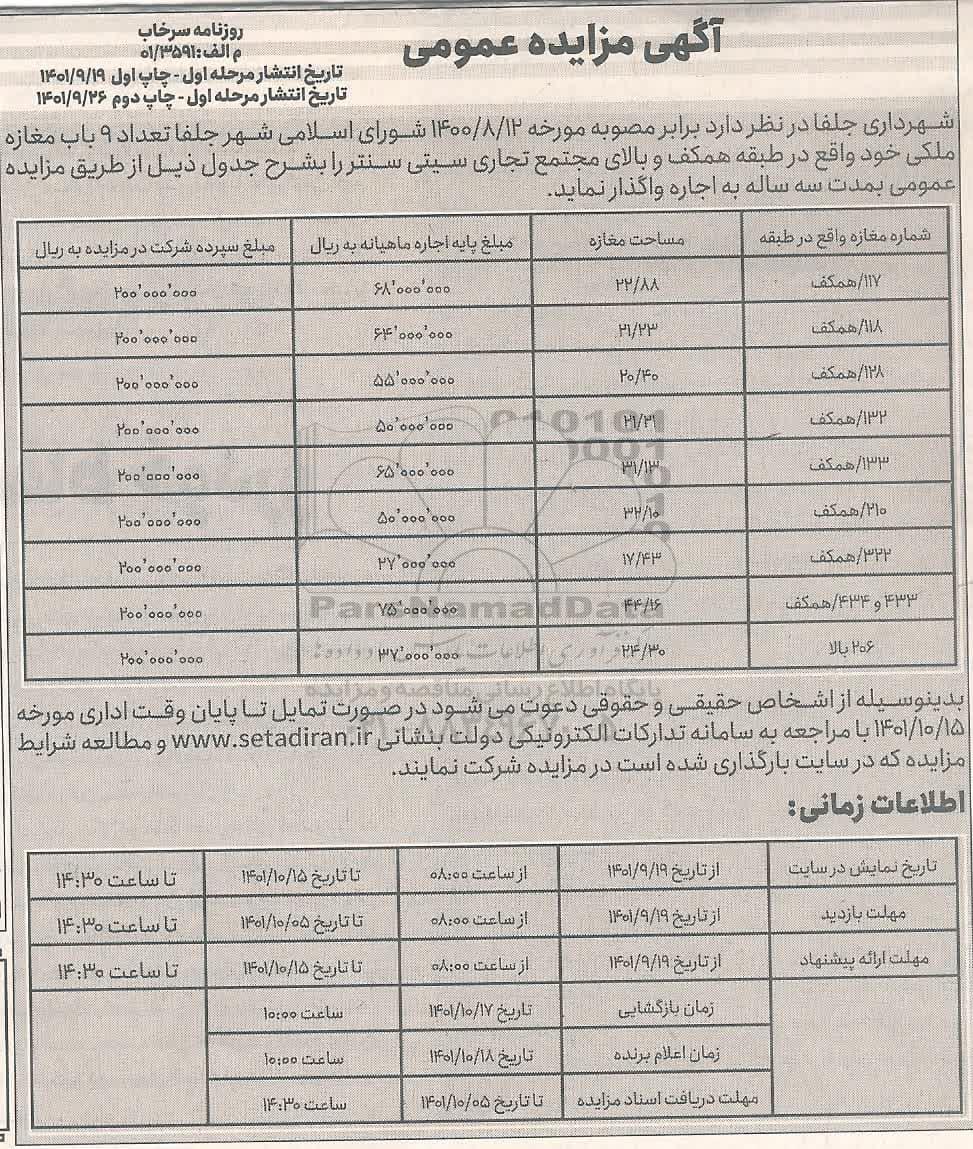 آگهی مزایده عمومی
روزنامه سرخاب
م الف:۰۱/۳۵۹۱
تاریخ انتشار مرحله اول - چاپ اول ۱۴۰۱/۹/۱۹
تاریخ انتشار مرحله اول - چاپ دوم ۱۴۰۱/۹/۲۶
شهرداری جلفا در نظر دارد برابر مصوبه مورخه ۱۴۰۰/۸/۱۲ شورای اسلامی شهر جلفا تعداد ۹ باب مغازه
ملکی خود واقع در طبقه همکف و بالای مجتمع تجاری سیتی سنتر را بشرح جدول ذیل از طریق مزایده
عمومی بمدت سه ساله به اجاره واگذار نماید.
شماره مغازه واقع در طبقه مساحت مغازه مبلغ پایه اجاره ماهیانه به ریال مبلغ سپرده شرکت در مزایده به ریال
۱۱۷/همکف ۲۲/۸۸ ۶۸٬۰۰۰٬۰۰۰ ۲۰۰٬۰۰۰٬۰۰۰
۱۱۸/همکف ۲۱/۲۳ ۶۴٬۰۰۰٬۰۰۰ ۲۰۰٬۰۰۰٬۰۰۰
۱۲۸/همکف ۲۰/۴۰ ۵۵٬۰۰۰٬۰۰۰ ۲۰۰٬۰۰۰٬۰۰۰
۱۳۲/همکف ۲۱/۲۱ ۵۰٬۰۰۰٬۰۰۰ ۲۰۰٬۰۰۰٬۰۰۰
۱۳۳/همکف ۳۱/۱۳ ۶۵٬۰۰۰٬۰۰۰ ۲۰۰٬۰۰۰٬۰۰۰
۲۱۰/همکف ۳۲/۱۰ ۵۰٬۰۰۰٬۰۰۰ ۲۰۰٬۰۰۰٬۰۰۰
۳۲۲/همکف ۱۷/۴۳ ۲۷٬۰۰۰٬۰۰۰ ۲۰۰٬۰۰۰٬۰۰۰
۴۳۳ و ۴۳۴/همکف ۴۴/۱۶ ۷۵٬۰۰۰٬۰۰۰ ۲۰۰٬۰۰۰٬۰۰۰
۲۰۶ بالا ۲۴/۳۰ ۳۷٬۰۰۰٬۰۰۰ ۲۰۰٬۰۰۰٬۰۰۰
ParsNamadData
پایگاه اطلاع رسانی مناقصه و مزایده
بدینوسیله از اشخاص حقیقی و حقوقی دعوت می شود در صورت تمایل تا پایان وقت اداری مورخه
۱۴۰۱/۱۰/۱۵ با مراجعه به سامانه تدارکات الکترونیکی دولت بنشانی www.setadiran.ir و مطالعه شرایط
مزایده که در سایت بارگذاری شده است در مزایده شرکت نمایند.
اطلاعات زمانی:
تاریخ نمایش در سایت از تاریخ ۱۴۰۱/۹/۱۹ از ساعت ۰۸:۰۰ تا تاریخ ۱۴۰۱/۱۰/۱۵ تا ساعت ۱۴:۳۰
مهلت بازدید از تاریخ ۱۴۰۱/۹/۱۹ از ساعت ۰۸:۰۰ تا تاریخ ۱۴۰۱/۱۰/۰۵ تا ساعت ۱۴:۳۰
مهلت ارائه پیشنهاد از تاریخ ۱۴۰۱/۹/۱۹ از ساعت ۰۸:۰۰ تا تاریخ ۱۴۰۱/۱۰/۱۵ تا ساعت ۱۴:۳۰
زمان بازگشایی تاریخ ۱۴۰۱/۱۰/۱۷ ساعت ۱۰:۰۰
زمان اعلام برنده تاریخ ۱۴۰۱/۱۰/۱۸ ساعت ۱۰:۰۰
مهلت دریافت اسناد مزایده تا تاریخ ۱۴۰۱/۱۰/۰۵ ساعت ۱۴:۳۰